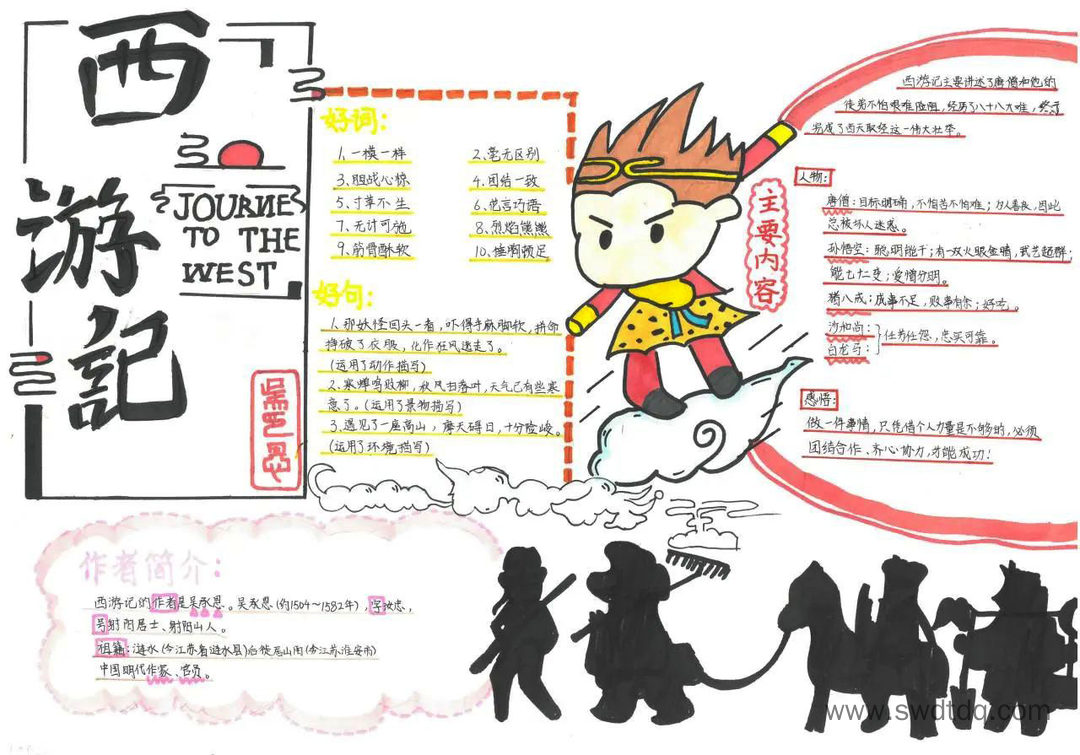 西
游
記
JOURNES
TO THE
WEST
好词：
1、一模一样
2、毫无区别
3、胆战心栋
4、团结一致
5、寸草不生
6、花言巧语
7、无计可施
8、烈焰熊熊
9、筋骨酥软
10、捶胸顿足
好句：
1、那妖怪回头一看，吓得手麻脚软，拼命
挣破了衣服，化作狂风逃走了。
(运用了动作描写)
2、寒蝉鸣败柳，秋风扫落叶，天气已有些寒
意了。(运用了景物描写)
3、遇见了一座高山，摩天碍日，十分险峻。
(运用了环境描写)
主要内容
西游记主要讲述了唐僧和他的
徒弟不怕艰难险阻，经历了八十八大难，终于
完成了西天取经这一伟大壮举。
人物：
唐僧：目标明确，不怕苦不怕难；为人善良，因此
总被坏人迷惑。
孙悟空：聪明能干；有一双火眼金睛，武艺超群；
能七十二变；爱憎分明。
猪八戒：成事不足，败事有余；好吃。
沙和尚：
白龙马：
任劳任怨，忠实可靠。
感悟：
做一件事情，只凭借个人力量是不够的，必须
团结合作、齐心协力，才能成功！
作者简介：
西游记的作者是吴承恩。吴承恩(约1504～1582年)，字汝忠，
号射阳居士、射阳山人。
祖籍：涟水(今江苏省涟水县)后徙居山阳(今江苏淮安市)
中国明代作家、官员。
www.swdtdq.com